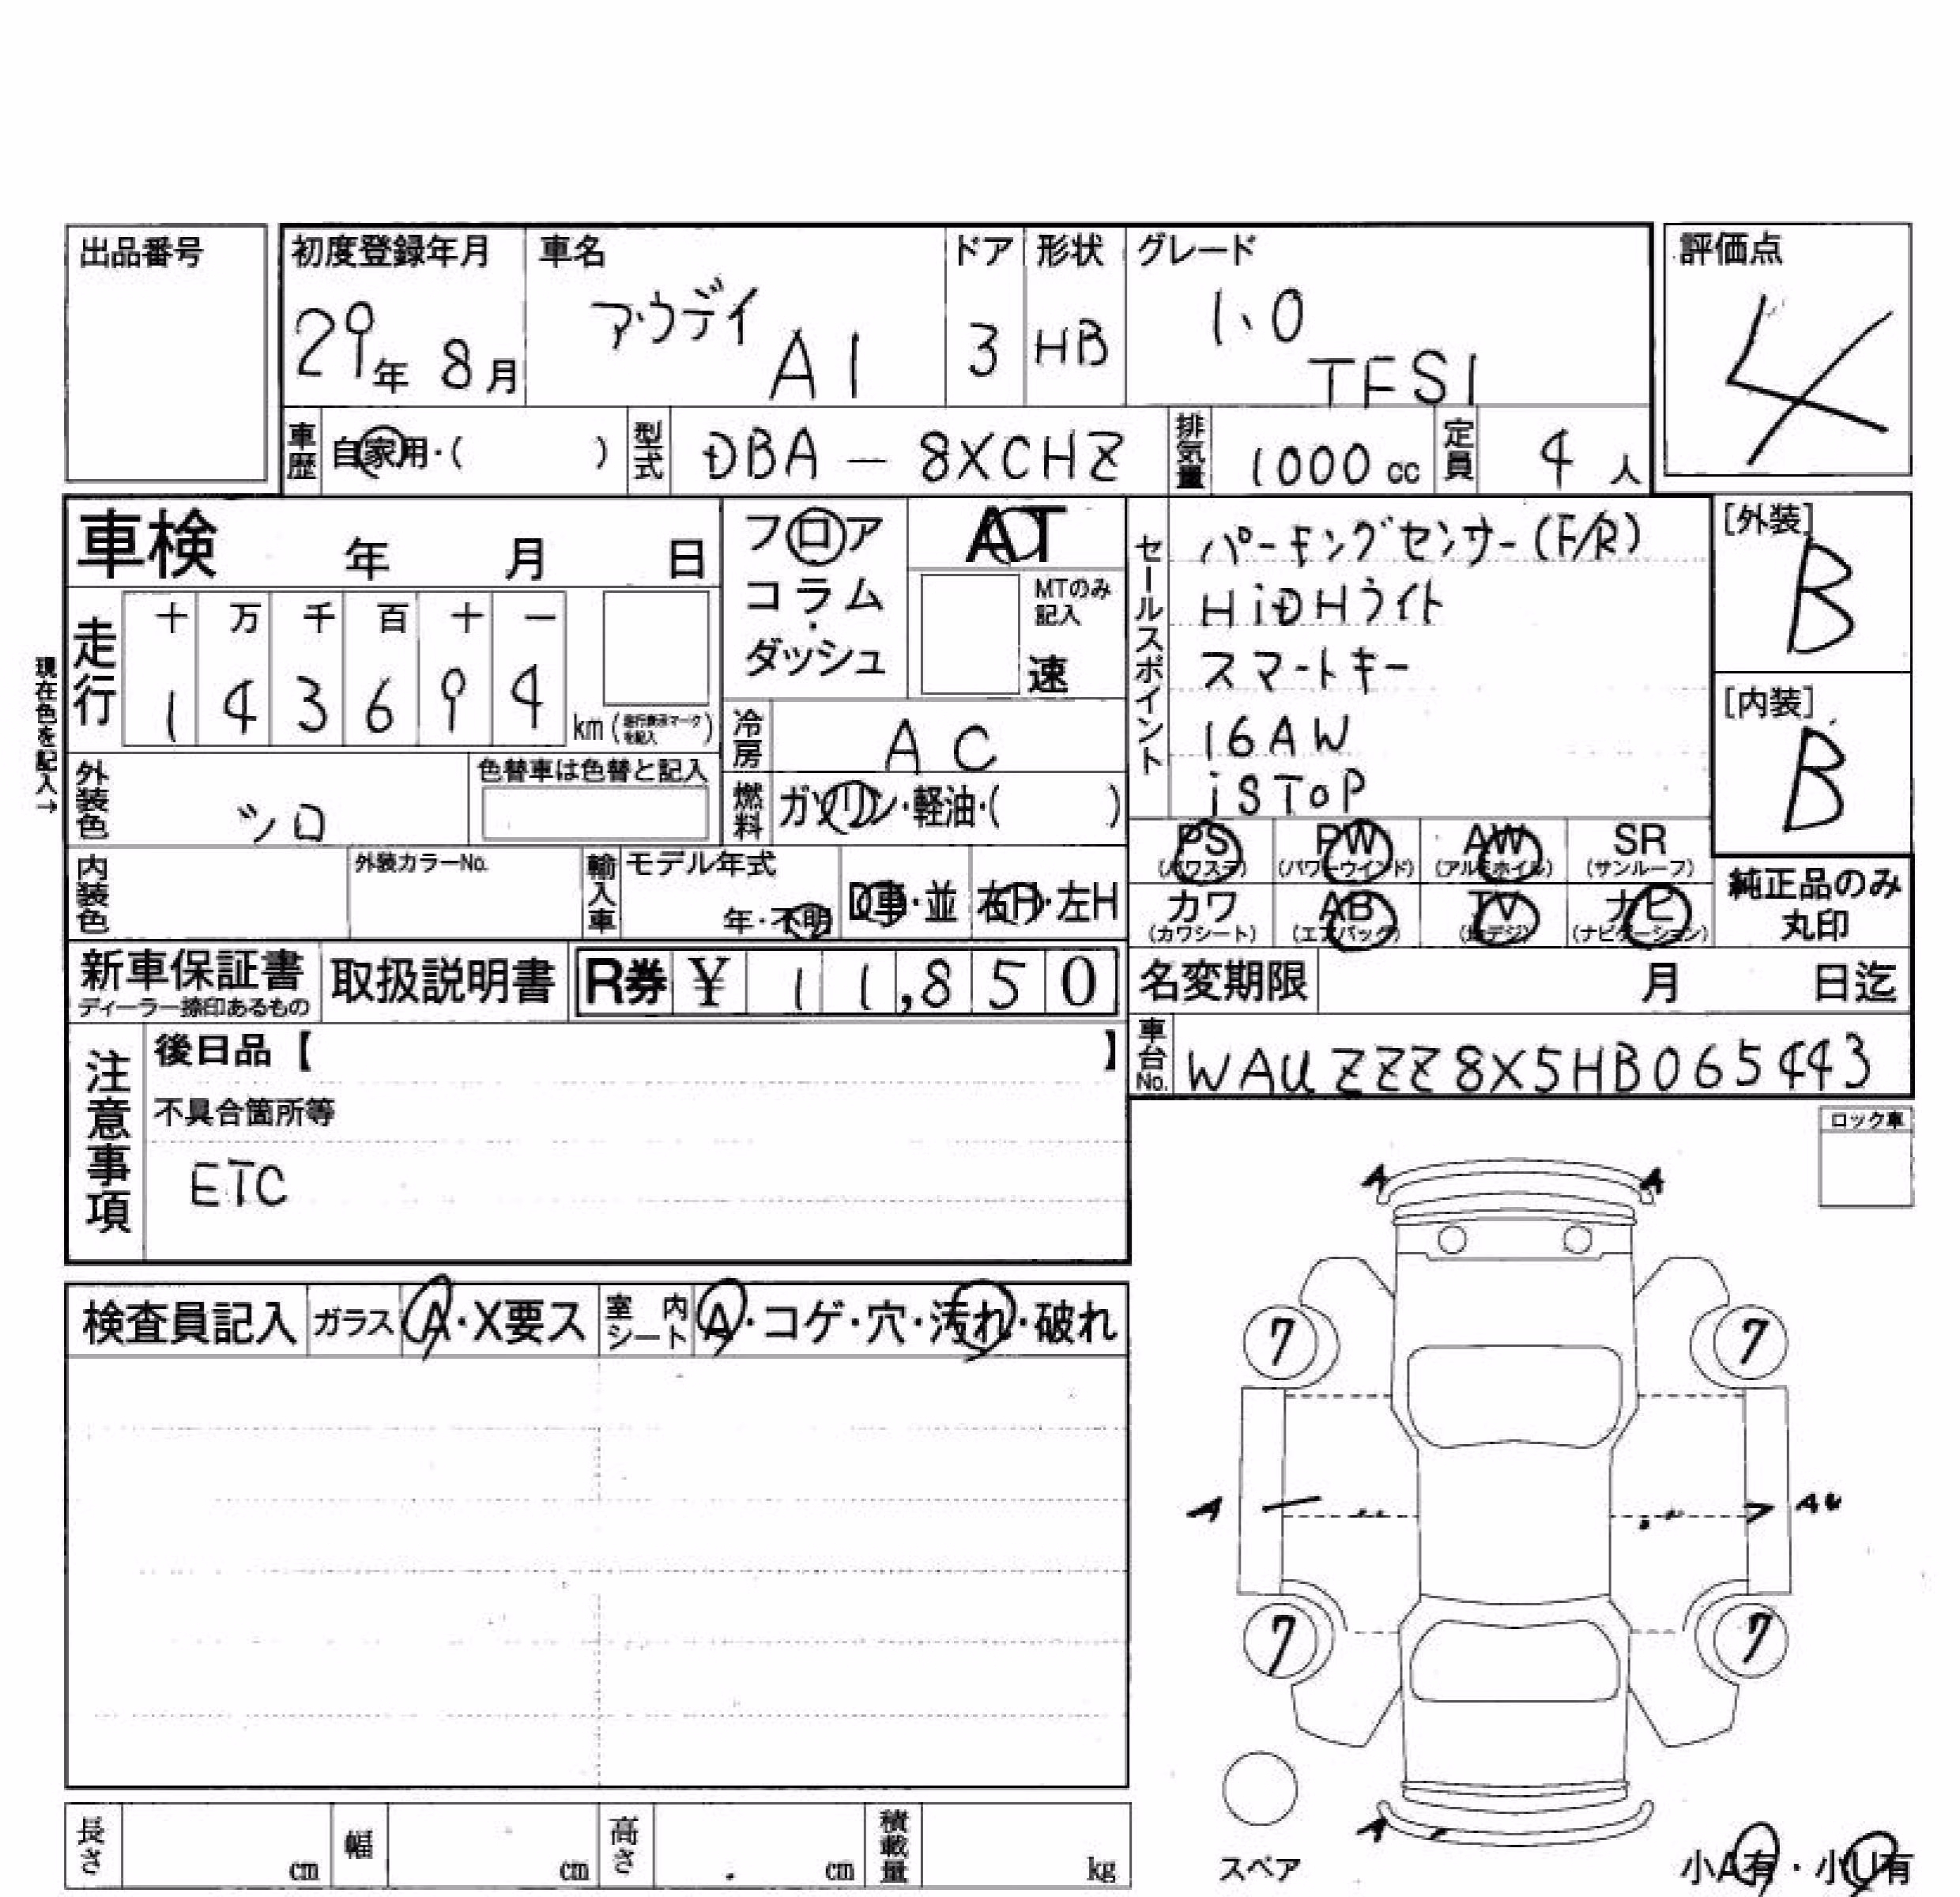 出品番号
初度登録年月
29年 8月
車名
アウディ
A1
ドア
3
形状
HB
グレード
1.0
TFSI
評価点
4
車歴
自家用・( )
型式
DBA-8XCHZ
排気量
1000cc
定員
4人
車検 年 月 日
フロア
コラム
・
ダッシュ
AT
MTのみ
記入
速
セールスポイント
パーキングセンサー(F/R)
HiDHライト
スマートキー
16AW
iSToP
[外装]
B
[内装]
B
現在色を記入→
走行
十 万 千 百 十 一
1 4 3 6 9 4
km
冷房
AC
外装色
シロ
色替車は色替と記入
燃料
ガソリン・軽油・( )
PS
(パワステ)
PW
(パワーウインド)
AW
(アルミホイル)
SR
(サンルーフ)
カワ
(カワシート)
AB
(エアバック)
TV
(地デジ)
ナビ
(ナビゲーション)
純正品のみ
丸印
内装色
外装カラーNo.
輸入車
モデル年式
年・不明
D車・並
右H・左H
新車保証書
ディーラー捺印あるもの
取扱説明書
R券 ¥ 11,850
名変期限 月 日迄
車台No.
WAUZZZ8X5HB065443
注意事項
後日品【 】
不具合箇所等
ETC
ロック車
A A
検査員記入
ガラス
A・X要ス
室内
シート
A・コゲ・穴・汚れ・破れ
7 7
A AU
7 7
A
スペア
小A有・小U有
長さ cm
幅 cm
高さ cm
積載量 kg